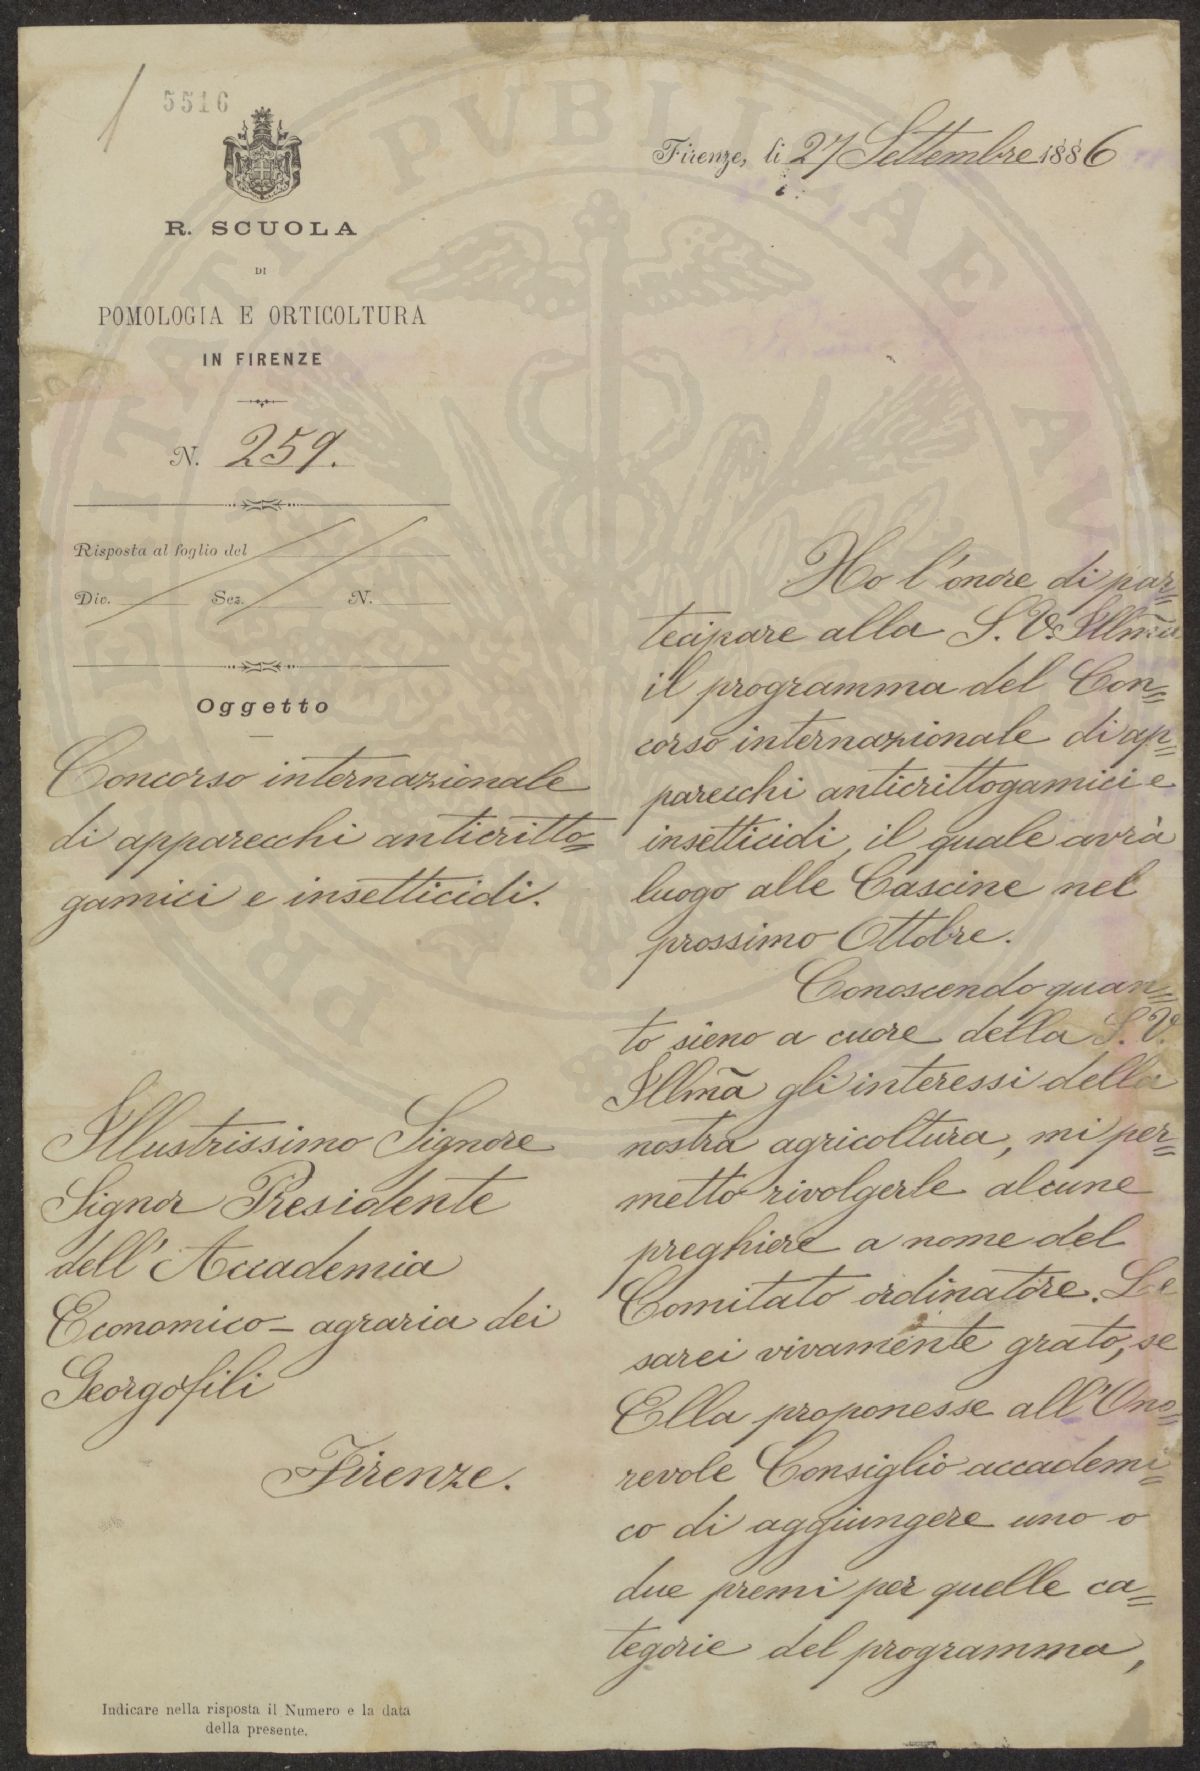 5516
Firenze, li 27 Settembre 1886
R. SCUOLA
DI
POMOLOGIA E ORTICOLTURA
IN FIRENZE
N. 259.
Risposta al foglio del
Div. Sez. N.
Oggetto
Concorso internazionale
di apparecchi anticritto=
gamici e insetticidi.
Illustrissimo Signore
Signor Presidente
dell'Accademia
Economico-agraria dei
Georgofili
Firenze.
Indicare nella risposta il Numero e la data
della presente.
Ho l'onore di par=
tecipare alla S. V. Illma
il programma del Con=
corso internazionale di ap=
parecchi anticrittogamici e
insetticidi, il quale avrà
luogo alle Cascine nel
prossimo Ottobre.
Conoscendo quan=
to sieno a cuore della S. V.
Illma gli interessi della
nostra agricoltura, mi per=
metto rivolgerle alcune
preghiere a nome del
Comitato ordinatore. Le
sarei vivamente grato, se
Ella proponesse all'Ono=
revole Consiglio accademi=
co di aggiungere uno o
due premi per quelle ca=
tegorie del programma,
PROSPERITATI PUBLICAE AU